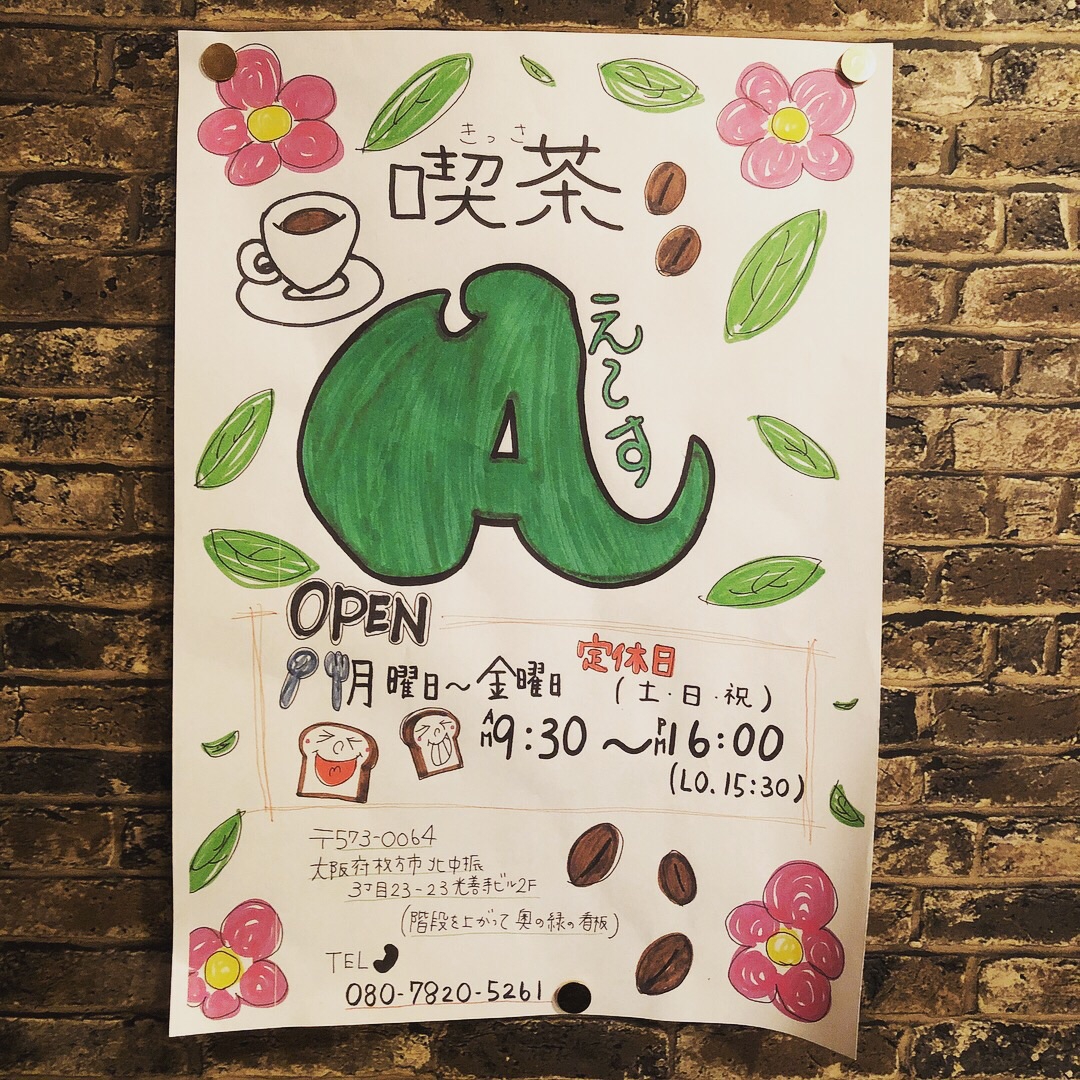 きっさ
喫茶
A
えーす
OPEN
月曜日～金曜日
定休日
(土・日・祝)
AM9:30～PM16:00
(LO.15:30)
〒573-0064
大阪府枚方市北中振
3丁目23-23光善寺ビル2F
(階段を上がって奥の緑の看板)
TEL
080-7820-5261